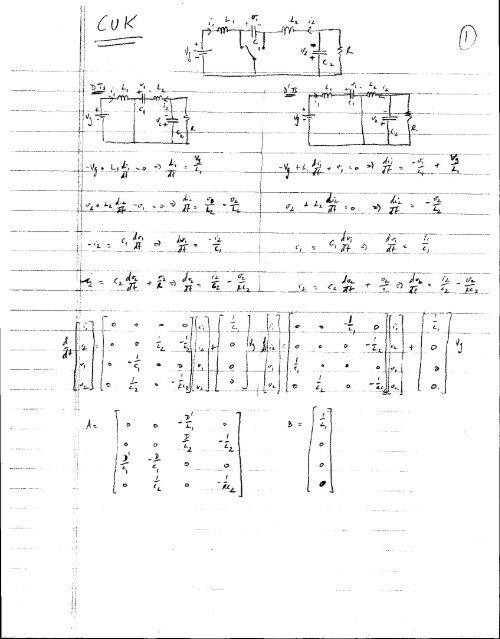 CUK
①
i₁ L₁ v₁ L₂ i₂
Vg C₁ v₂ C₂ R
DTs i₁ L₁ v₁ L₂ i₂
Vg C₁ v₂ C₂ R
D'Ts i₁ L₁ v₁ L₂ i₂
Vg C₁ v₂ C₂ R
-Vg + L₁ di₁/dt = 0 ⇒ di₁/dt = Vg/L₁
-Vg + L₁ di₁/dt + v₁ = 0 ⇒ di₁/dt = -v₁/L₁ + Vg/L₁
v₂ + L₂ di₂/dt - v₁ = 0 ⇒ di₂/dt = v₁/L₂ - v₂/L₂
v₂ + L₂ di₂/dt = 0 ⇒ di₂/dt = -v₂/L₂
-i₂ = C₁ dv₁/dt ⇒ dv₁/dt = -i₂/C₁
i₁ = C₁ dv₁/dt ⇒ dv₁/dt = i₁/C₁
i₂ = C₂ dv₂/dt + v₂/R ⇒ dv₂/dt = i₂/C₂ - v₂/RC₂
i₂ = C₂ dv₂/dt + v₂/R ⇒ dv₂/dt = i₂/C₂ - v₂/RC₂
d/dt [i₁ i₂ v₁ v₂] = [0 0 0 0; 0 0 1/L₂ -1/L₂; 0 -1/C₁ 0 0; 0 1/C₂ 0 -1/RC₂] [i₁ i₂ v₁ v₂] + [1/L₁ 0 0 0] Vg
d/dt [i₁ i₂ v₁ v₂] = [0 0 -1/L₁ 0; 0 0 0 -1/L₂; 1/C₁ 0 0 0; 0 1/C₂ 0 -1/RC₂] [i₁ i₂ v₁ v₂] + [1/L₁ 0 0 0] Vg
A = [0 0 -D'/L₁ 0; 0 0 D/L₂ -1/L₂; D'/C₁ -D/C₁ 0 0; 0 1/C₂ 0 -1/RC₂]
B = [1/L₁ 0 0 0]